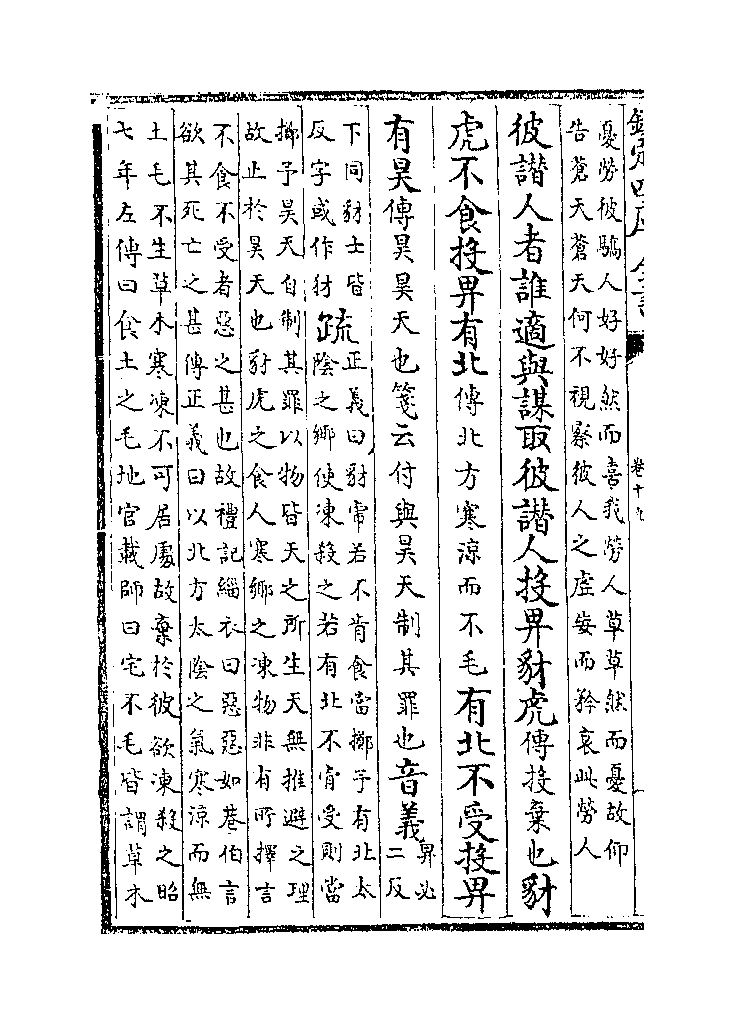 欽定四庫全書 卷十九
憂勞彼驕人好好然而喜我勞人草草然而憂故仰
告蒼天蒼天何不視察彼人之虛妄而矜哀此勞人
彼譖人者誰適與謀取彼譖人投畀豺虎傳投棄也豺
虎不食投畀有北傳北方寒涼而不毛有北不受投畀
有昊傳昊昊天也箋云付與昊天制其罪也音義畀必
二反
下同豺士皆
反字或作犲
疏正義曰豺虎若不肯食當擲予有北太
陰之鄉使凍殺之若有北不肯受則當
擲予昊天自制其罪以物皆天之所生天無推避之理
故止於昊天也豺虎之食人寒鄉之凍物非有所擇言
不食不受者惡之甚也故禮記緇衣曰惡惡如巷伯言
欲其死亡之甚傳正義曰以北方太陰之氣寒涼而無
土毛不生草木寒凍不可居處故棄於彼欲凍殺之昭
七年左傳曰食土之毛地官載師曰宅不毛皆謂草木